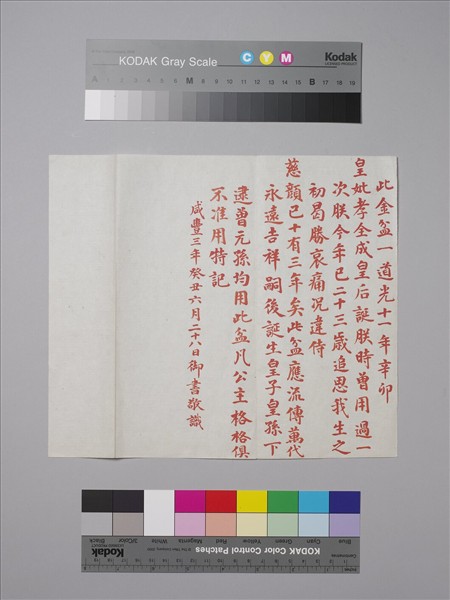 KODAK Gray Scale
C Y M
Kodak
LICENSED PRODUCT
A 1 2 3 4 5 6 M 8 9 10 11 12 13 14 15 B 17 18 19
此金盆一道光十一年辛卯
皇妣孝全成皇后誕朕時曾用過一
次朕今年已二十三歲追思我生之
初曷勝哀痛況違侍
慈顏已十有三年矣此盆應流傳萬代
永遠吉祥嗣後誕生皇子皇孫下
逮曾元孫均用此盆凡公主格格俱
不准用特記
咸豐三年癸丑六月二十八日御書敬識
Blue Cyan Green Yellow Red Magenta White 3/Color Black
KODAK Color Control Patches
Kodak
LICENSED PRODUCT